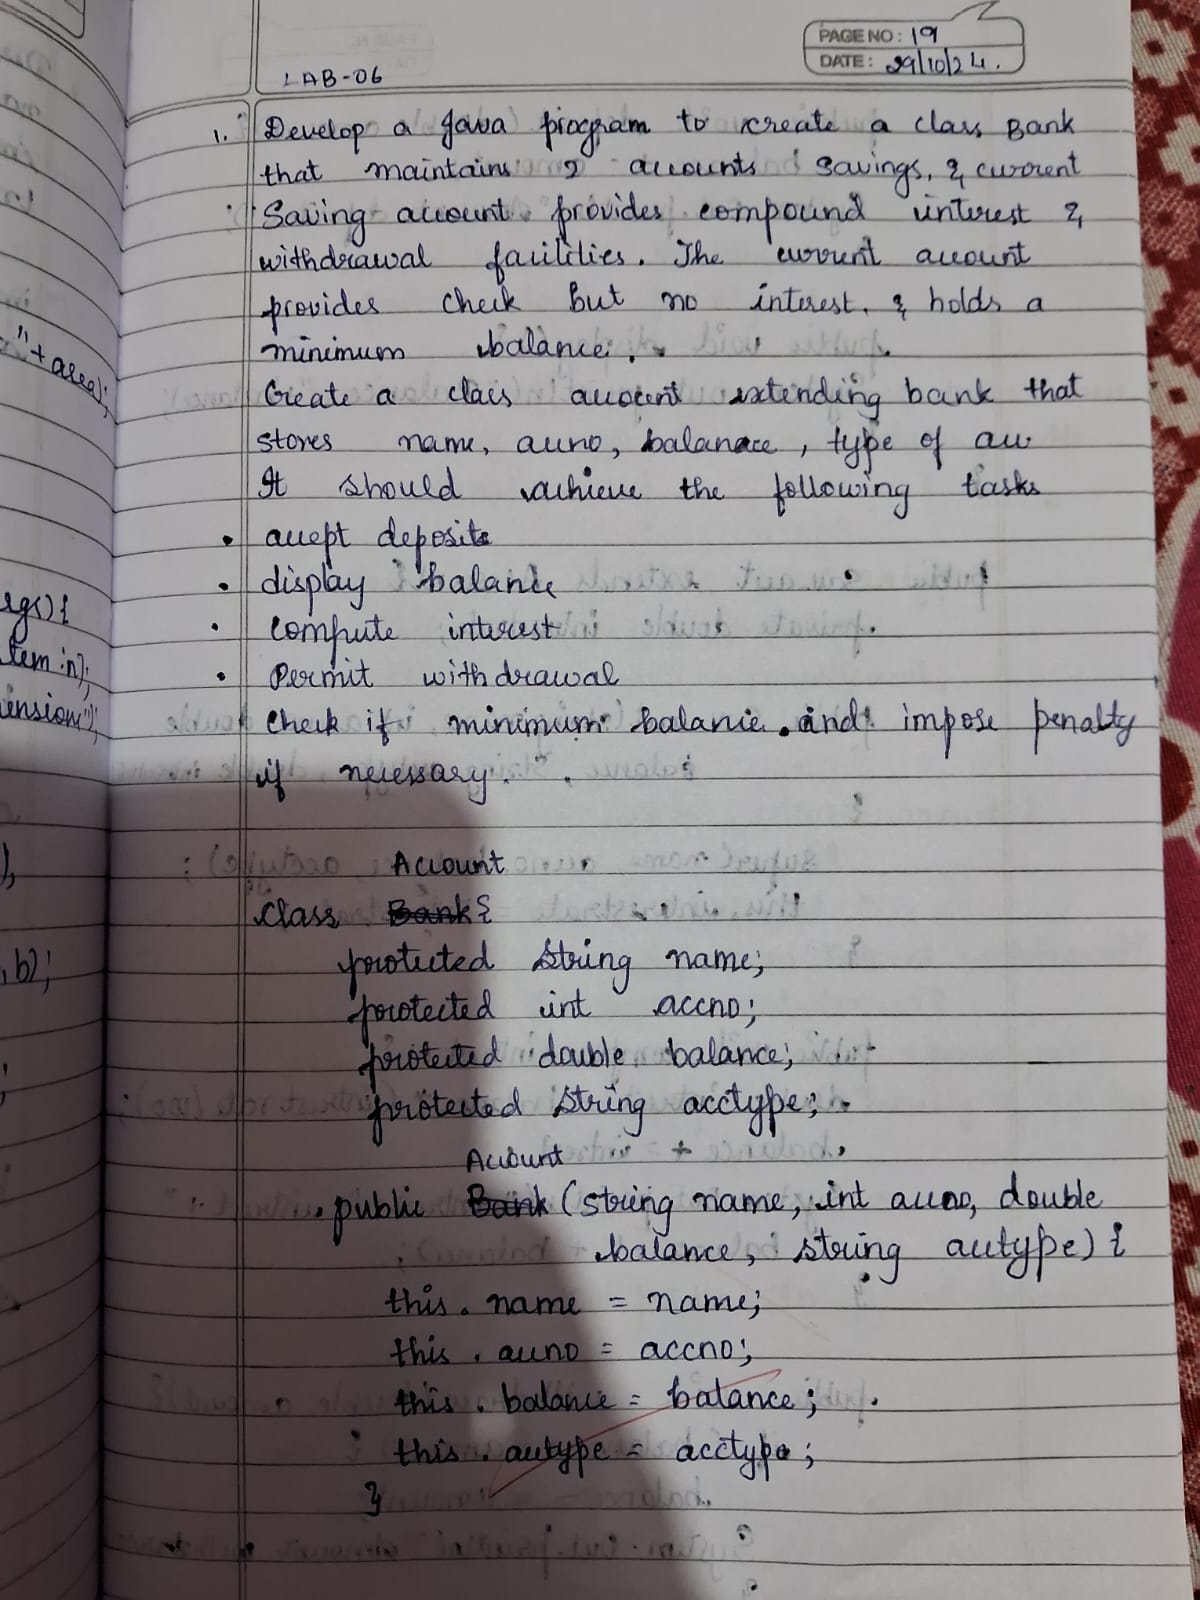 PAGE NO: 19
DATE: 29/10/24.
LAB-06
1. Develop a Java program to create a class Bank
that maintains 2 accounts savings, & current
Saving account provides compound interest &
withdrawal facilities. The current account
provides check but no interest. & holds a
minimum balance.
Create a class account extending bank that
stores name, accno, balanace, type of acc
It should achieve the following tasks
• accept deposits
• display balance
• compute interest
• Permit withdrawal
check if minimum balance and impose penalty
if necessary.
Account
class Bank {
protected String name;
protected int accno;
protected double balance;
protected String acctype;
Account
public Bank (string name, int accno, double
balance, string acctype) {
this. name = name;
this. accno = accno;
this. balance = balance;
this. acctype = acctype;
}
"+ area);
rgs() {
tem.in);
ension");
),
, b);
;